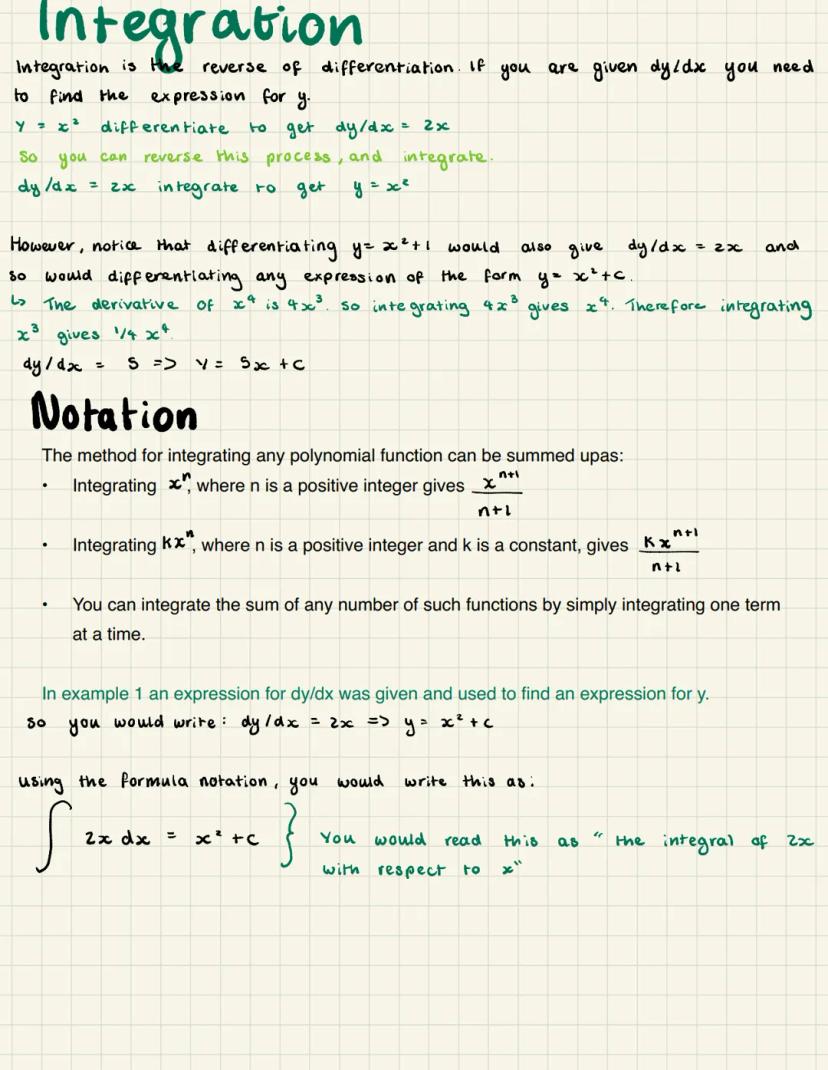 Integration
Integration is the reverse of differentiation. If you are given dy/dx you need
to find the expression for y.
y = x² differentiate to get dy/dx = 2x
So you can reverse this process, and integrate.
dy/dx = 2x integrate to get y = x²
However, notice that differentiating y = x²+1 would also give dy/dx = 2x and
so would differentiating any expression of the form y = x²+c.
↳ The derivative of x⁴ is 4x³. So integrating 4x³ gives x⁴. Therefore integrating
x³ gives 1/4 x⁴.
dy/dx = 5 => y = 5x + c
Notation
The method for integrating any polynomial function can be summed upas:
• Integrating xⁿ, where n is a positive integer gives xⁿ⁺¹
n+1
• Integrating kxⁿ, where n is a positive integer and k is a constant, gives kxⁿ⁺¹
n+1
• You can integrate the sum of any number of such functions by simply integrating one term
at a time.
In example 1 an expression for dy/dx was given and used to find an expression for y.
so you would write: dy/dx = 2x => y = x² + c
using the formula notation, you would write this as:
∫ 2x dx = x² + c } You would read this as "the integral of 2x
with respect to x"